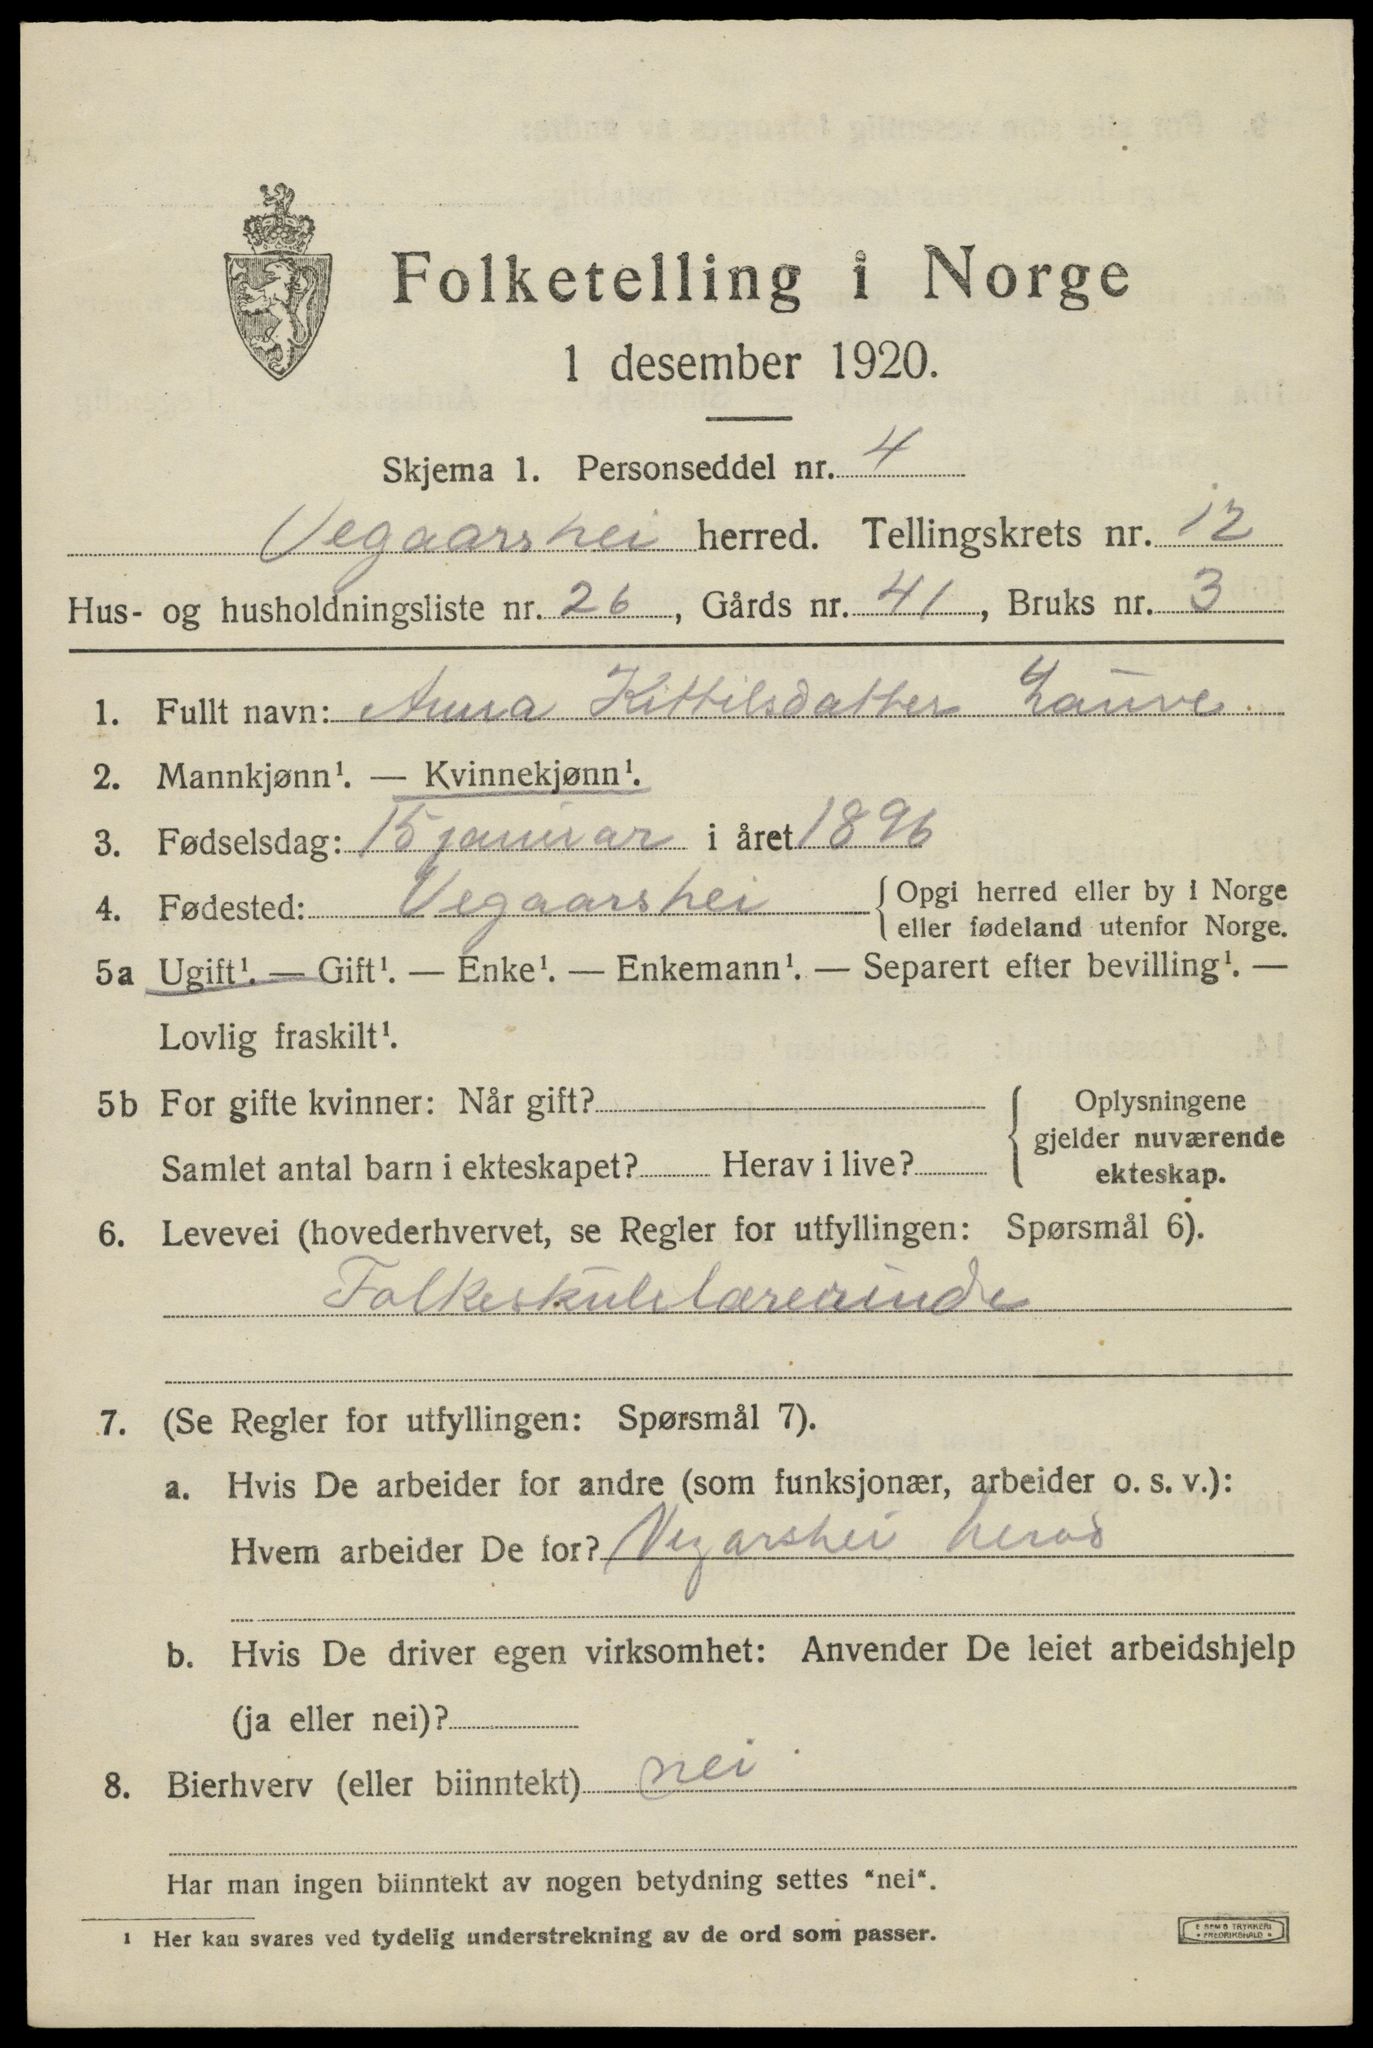 Folketelling i Norge
1 desember 1920.
Skjema 1. Personseddel nr. 4
Vegaarshei herred. Tellingskrets nr. 12
Hus- og husholdningsliste nr. 26, Gårds nr. 41, Bruks nr. 3
1. Fullt navn: Anna Kittilsdatter Lauve
2. Mannkjønn¹. — Kvinnekjønn¹.
3. Fødselsdag: 15 januar i året 1896
4. Fødested: Vegaarshei { Opgi herred eller by i Norge
eller fødeland utenfor Norge.
5a Ugift¹. — Gift¹. — Enke¹. — Enkemann¹. — Separert efter bevilling¹. —
Lovlig fraskilt¹.
5b For gifte kvinner: Når gift? { Oplysningene
gjelder nuværende
Samlet antal barn i ekteskapet? Herav i live? ekteskap.
6. Levevei (hovederhvervet, se Regler for utfyllingen: Spørsmål 6).
Folkeskulelærerinde
7. (Se Regler for utfyllingen: Spørsmål 7).
a. Hvis De arbeider for andre (som funksjonær, arbeider o. s. v.):
Hvem arbeider De for? Vegarshei herad
b. Hvis De driver egen virksomhet: Anvender De leiet arbeidshjelp
(ja eller nei)?
8. Bierhverv (eller biinntekt) nei
Har man ingen biinntekt av nogen betydning settes "nei".
¹ Her kan svares ved tydelig understrekning av de ord som passer.
E. SEM'S TRYKKERI
FREDRIKSHALD